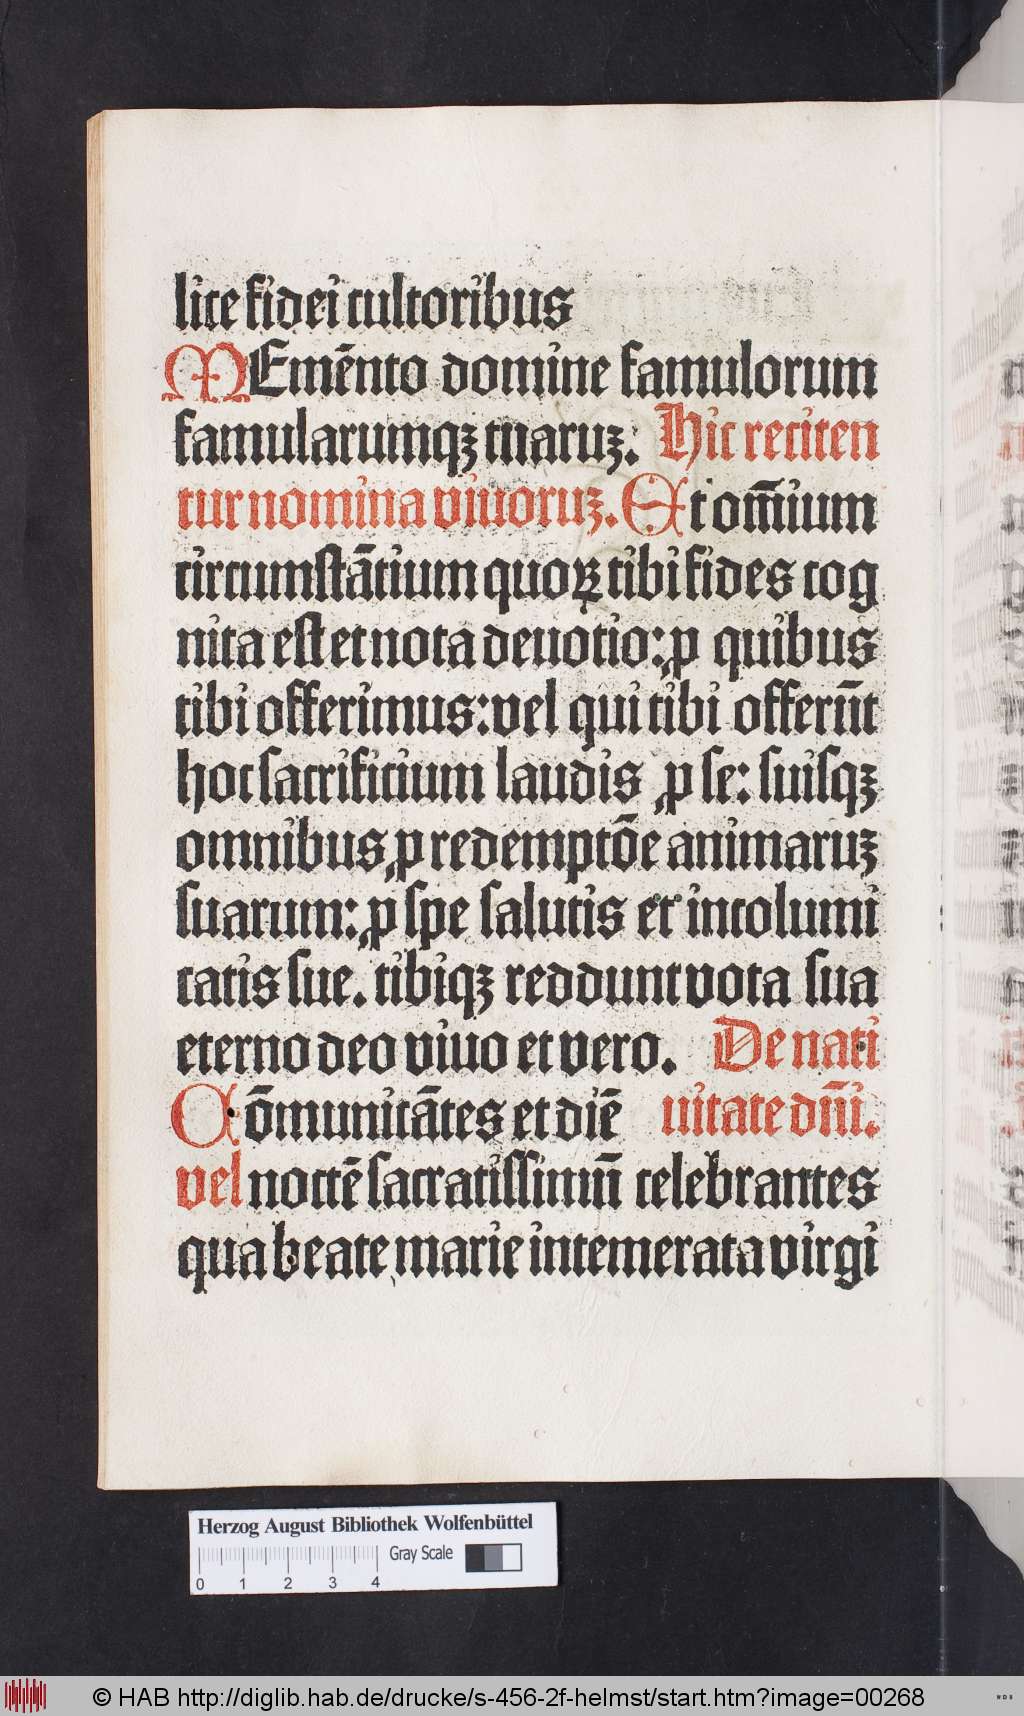 lice fidei cultoribus
MEmēnto domine famulorum
famularumqꝫ tuaruꝫ. Hic reciten
tur nomina viuoruꝫ. Et om̄ium
circumstātium quoꝝ tibi fides cog
nita est et nota deuotio: ꝓ quibus
tibi offerimus: vel qui tibi offerūt
hoc sacrificium laudis ꝓ se: suisqꝫ
omnibus ꝓ redemptōe animaruꝫ
suarum: ꝓ spe salutis et incolumi
tatis sue. tibiqꝫ reddunt vota sua
eterno deo viuo et vero. De nati
Cōmunicātes et diē uitate dn̄i.
vel noctē sacratissimū celebrantes
qua beate marie intemerata virgi
Herzog August Bibliothek Wolfenbüttel
0 1 2 3 4 Gray Scale
© HAB http://diglib.hab.de/drucke/s-456-2f-helmst/start.htm?image=00268